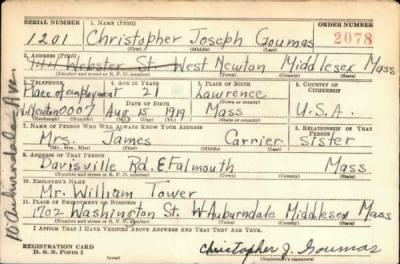 SERIAL NUMBER 1. NAME (Print) ORDER NUMBER
1201 Christopher Joseph Goumas 2078
(First) (Middle) (Last)
2. ADDRESS (Print)
Webster St. West Newton Middlesex Mass
(Number and street or R. F. D. number) (Town) (County) (State)
10 Auburndale Ave.
3. TELEPHONE 4. AGE IN YEARS 5. PLACE OF BIRTH 6. COUNTRY OF CITIZENSHIP
Place of employment 21 Lawrence
DATE OF BIRTH (Town or county)
W.Newton 0007 Aug 15 1919 Mass U.S.A.
(Mo.) (Day) (Yr.) (State or country)
7. NAME OF PERSON WHO WILL ALWAYS KNOW YOUR ADDRESS 8. RELATIONSHIP OF THAT PERSON
Mrs. James Carrier Sister
(Mr., Mrs., Miss) (First) (Middle) (Last)
9. ADDRESS OF THAT PERSON
Davisville Rd. E. Falmouth Mass
(Number and street or R. F. D. number) (Town) (County) (State)
10. EMPLOYER'S NAME
Mr. William Tower
11. PLACE OF EMPLOYMENT OR BUSINESS
1702 Washington St. W Auburndale Middlesex Mass
(Number and street or R. F. D. number) (Town) (County) (State)
I AFFIRM THAT I HAVE VERIFIED ABOVE ANSWERS AND THAT THEY ARE TRUE.
REGISTRATION CARD
D. S. S. Form 1 (over) Christopher J. Goumas
(Registrant's signature)